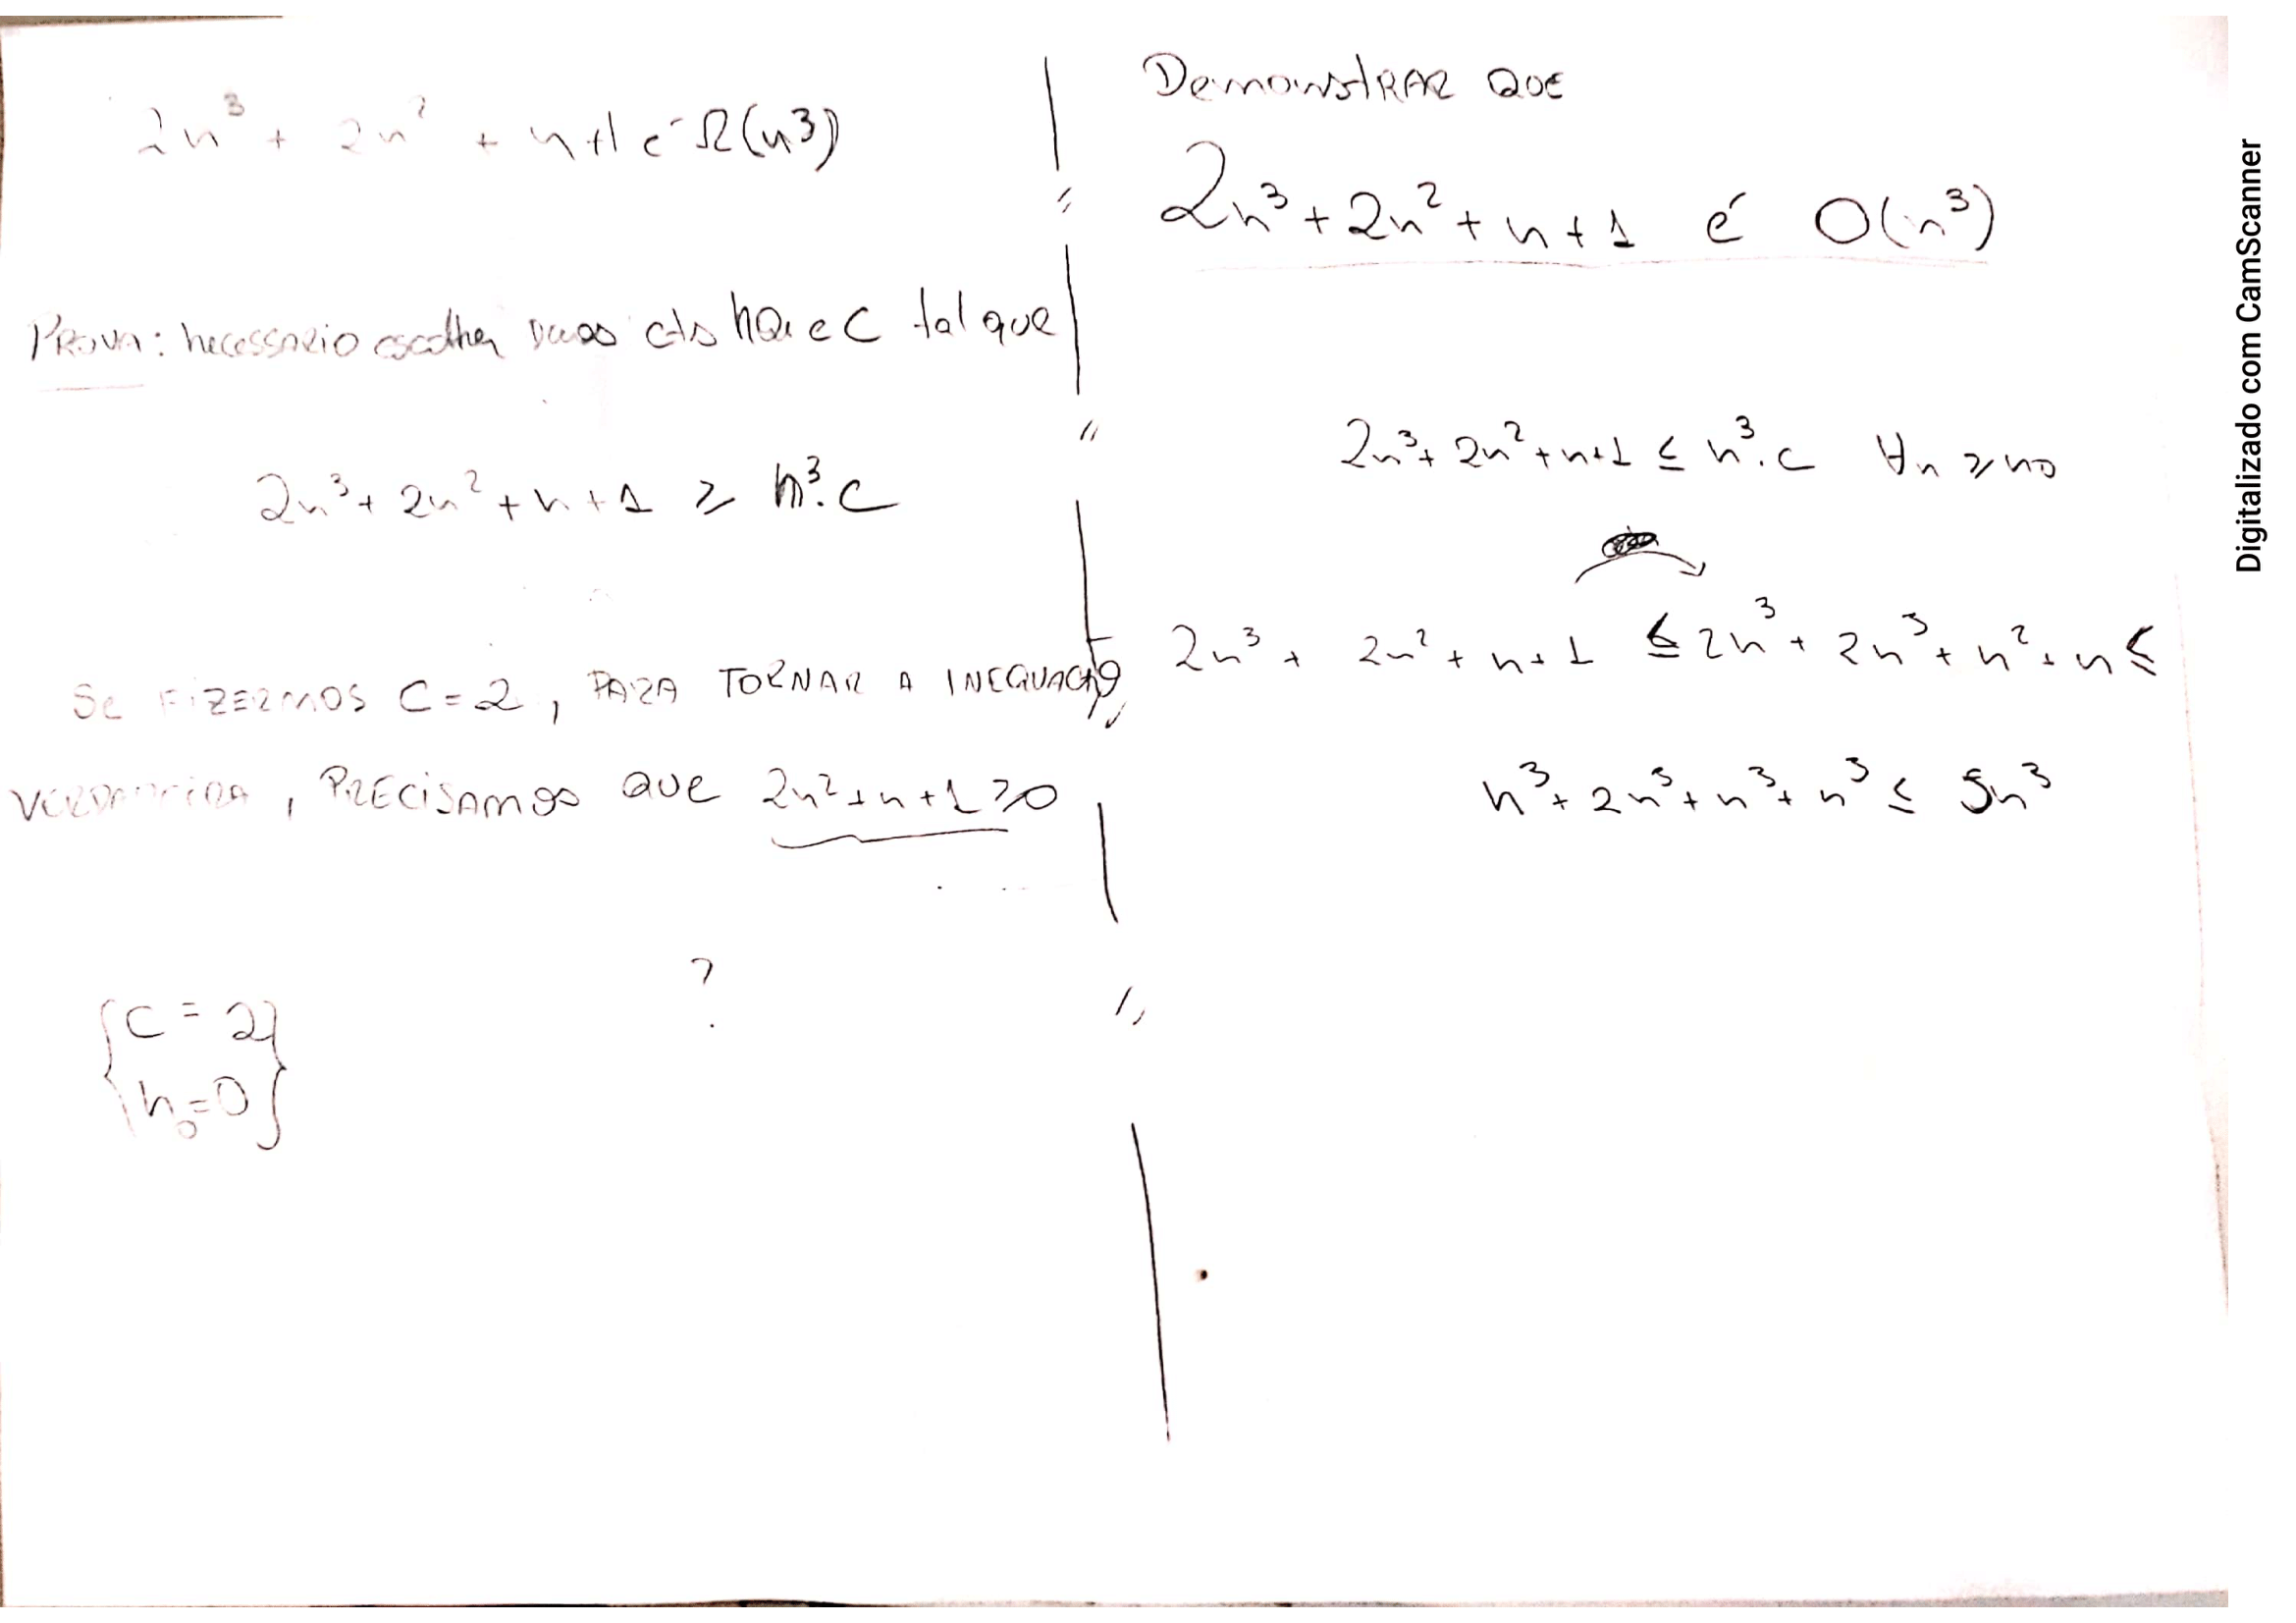 2n³ + 2n² + n+1 é Ω(n³)
PROVA: necessario escolher duas cts no e c tal que
2n³ + 2n² + n + 1 ≥ n³.c
Se FIZERMOS C = 2, PARA TORNAR A INEQUAÇÃO
VERDADEIRA, PRECISAMOS QUE 2n² + n + 1 ≥ 0
?
C = 2
n₀ = 0
DemonstRAR QUE
2n³ + 2n² + n + 1 é O(n³)
2n³ + 2n² + n+1 ≤ n³.c ∀n ≥ n0
2n³ + 2n² + n+1 ≤ 2n³ + 2n³ + n² + n ≤
n³ + 2n³ + n³ + n³ ≤ 5n³
Digitalizado com CamScanner